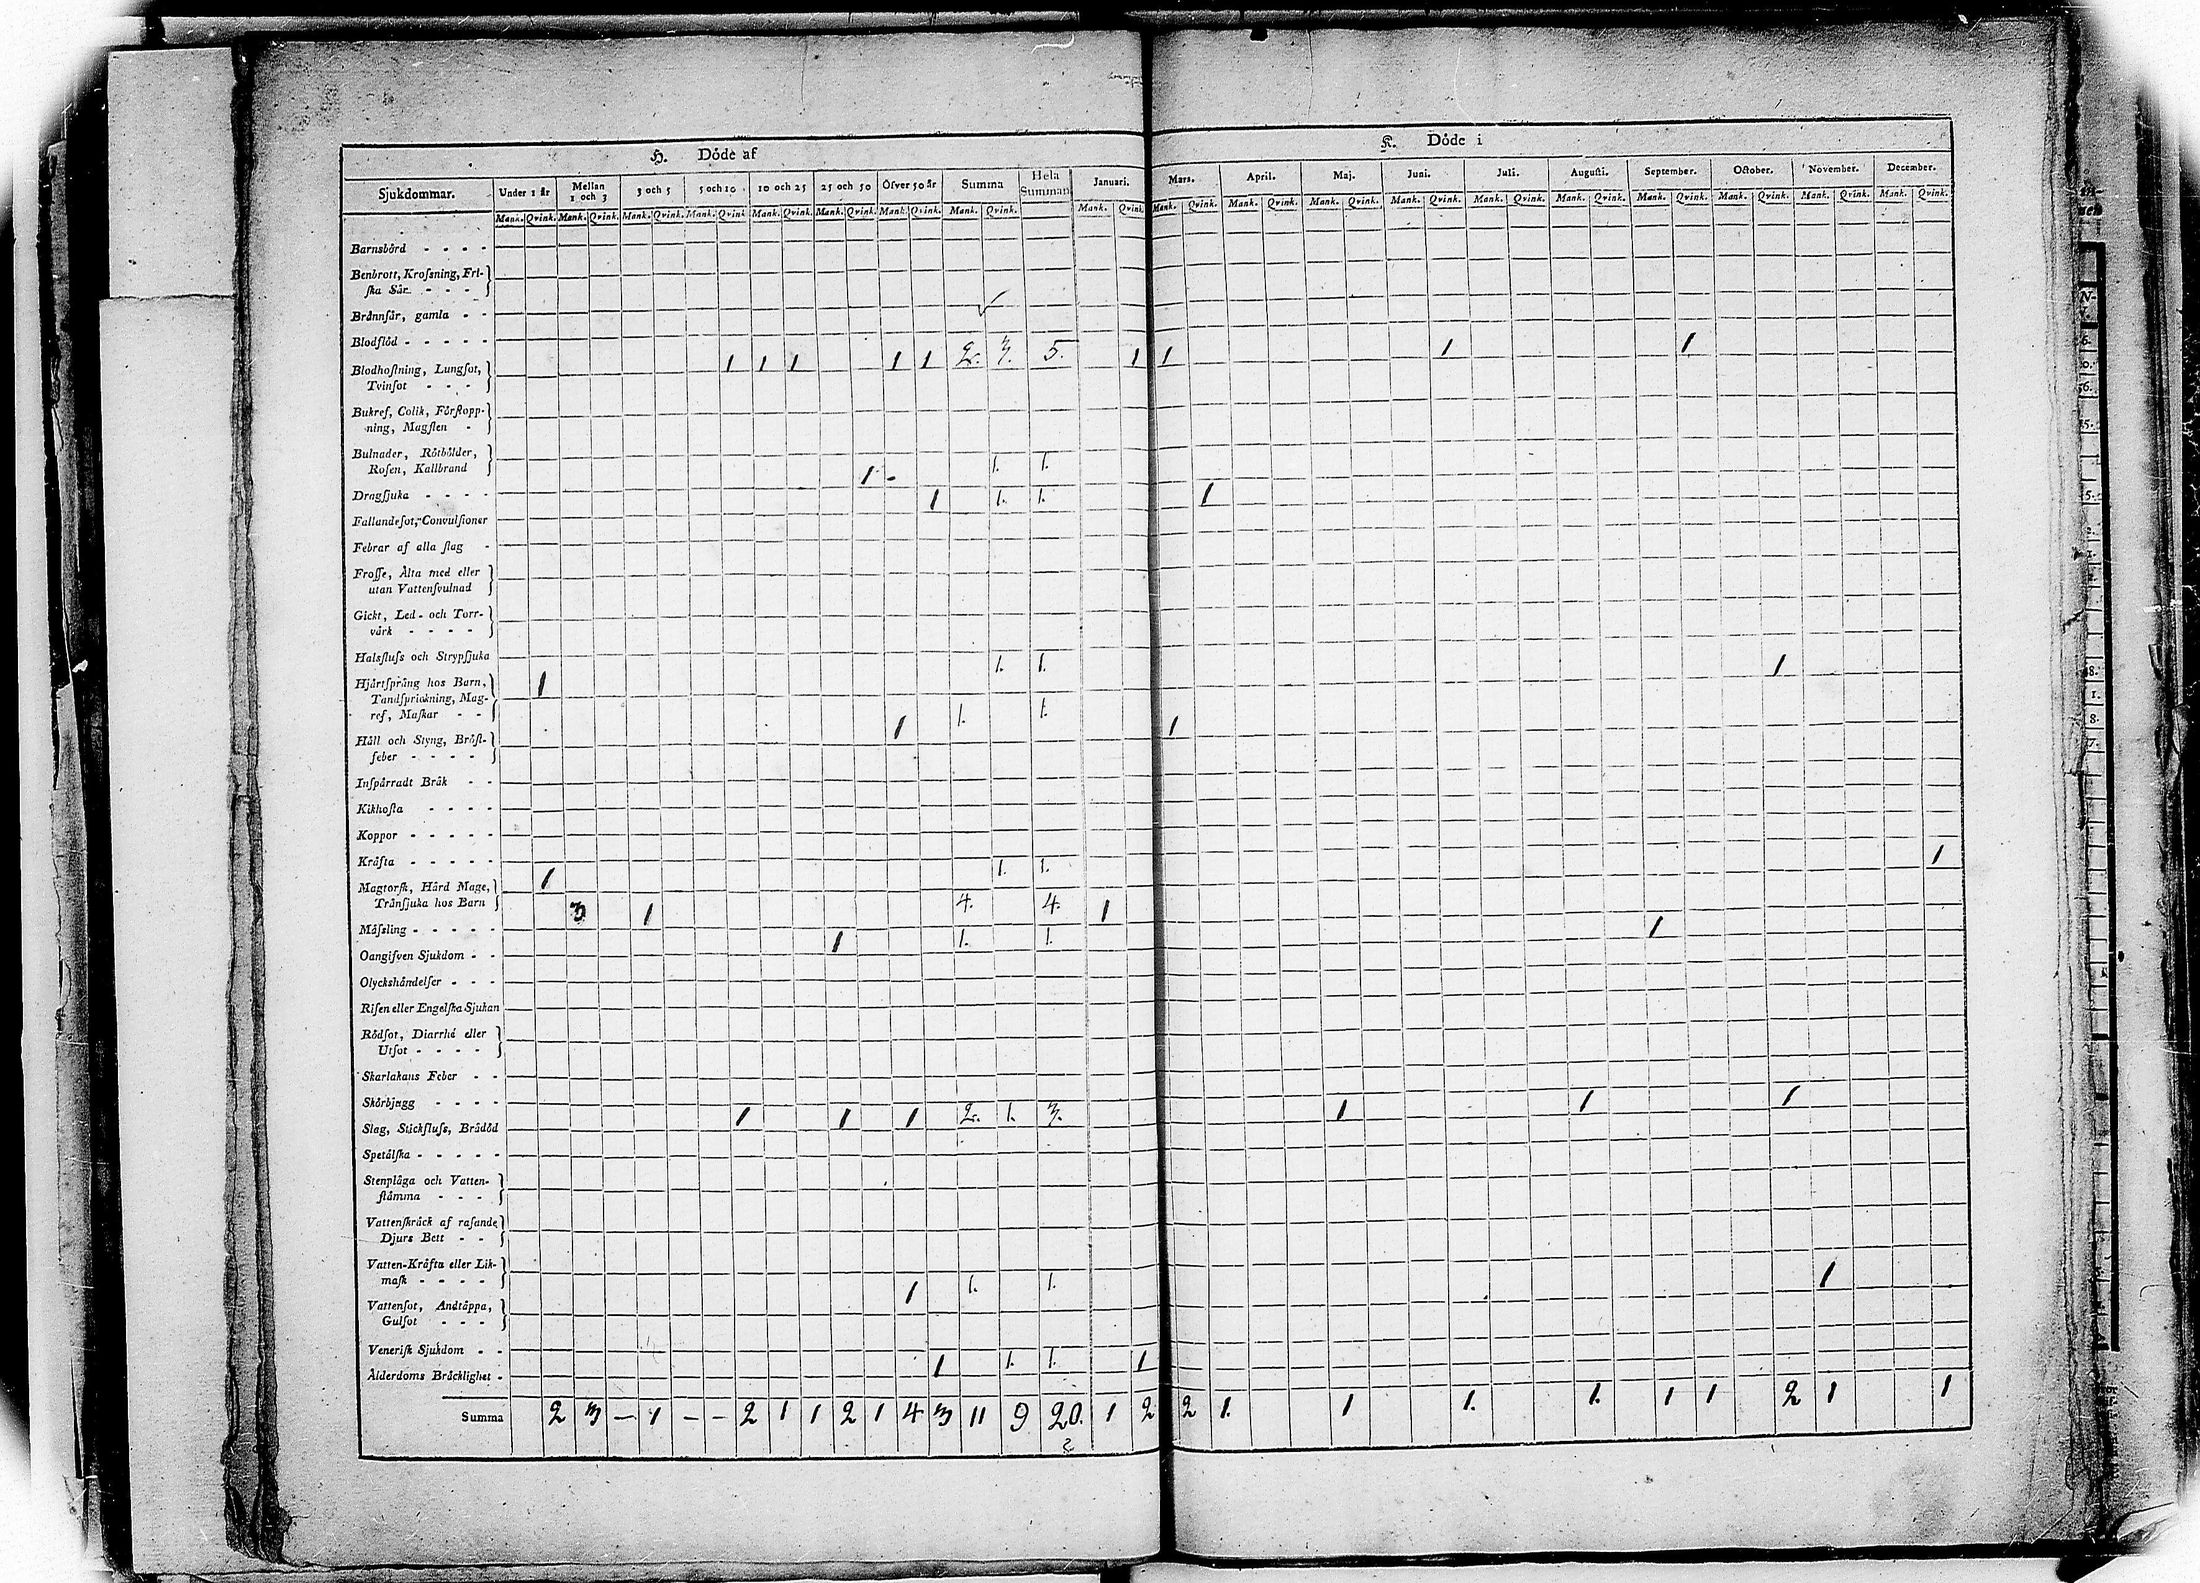 H. Döde af
K. Döde i
Sjukdommar. Under 1 år Mellan 1 och 3 3 och 5 5 och 10 10 och 25 25 och 50 Öfver 50 år Summa Hela Summan Januari. Mars. April. Maj. Juni. Juli. Augusti. September. October. November. December.
Mank. Qvink. Mank. Qvink. Mank. Qvink. Mank. Qvink. Mank. Qvink. Mank. Qvink. Mank. Qvink. Mank. Qvink. Mank. Qvink. Mank. Qvink. Mank. Qvink. Mank. Qvink. Mank. Qvink. Mank. Qvink. Mank. Qvink. Mank. Qvink. Mank. Qvink. Mank. Qvink. Mank. Qvink.
Barnsbörd - - - -
Benbrott, Krosning, Fri-
ska Sår - - -
Brännsår, gamla - -
Blodflöd - - - - -
1 1 1 1 1 2. 3. 5. 1 1 1 1
Blodhostning, Lungsot,
Tvinsot - - -
Bukref, Colik, Förstopp-
ning, Magsten -
Bulnader, Rötbölder,
Rosen, Kallbrand
1 - 1. 1.
Dragsjuka - - - -
1 1. 1. 1
Fallandesot, Convulsioner
Febrar af alla slag -
Frosse, Älta med eller
utan Vattensvulnad
Gickt, Led- och Torr-
värk - - - -
Halsfluss och Strypsjuka
1 1. 1. 1
Hjärtsprång hos Barn,
Tandsprickning, Mag-
ref, Maskar - -
1 1. 1. 1
Håll och Styng, Bröst-
feber - - - -
Inspärradt Bråk - -
Kikhosta - - - -
Koppor - - - - -
Kräfta - - - - -
1 1. 1. 1
Magtorsk, Hård Mage,
Trånsjuka hos Barn
3 1 4. 4. 1
Mässling - - - - -
1 1. 1. 1
Oangifven Sjukdom - -
Olyckshändelser - - -
Risen eller Engelska Sjukan
Rödsot, Diarrhé eller
Utsot - - - -
Skarlakans Feber - -
Skörbjugg - - - -
1 1 1 2. 1. 3. 1 1 1
Slag, Stickfluss, Brådöd
Spetälska - - - - -
Stenplåga och Vatten-
stämma - - -
Vattenskräck af rasande
Djurs Bett - -
Vatten-Kräfta eller Lik-
mask - - - -
1 1. 1. 1
Vattensot, Andtäppa,
Gulsot - - -
Venerisk Sjukdom - -
1 1. 1. 1
Ålderdoms Bräcklighet -
Summa 2 3 — 1 — — 2 1 1 2 1 4 3 11 9 20. 1 2 2 1. 1 1. 1. 1 1 2 1 1